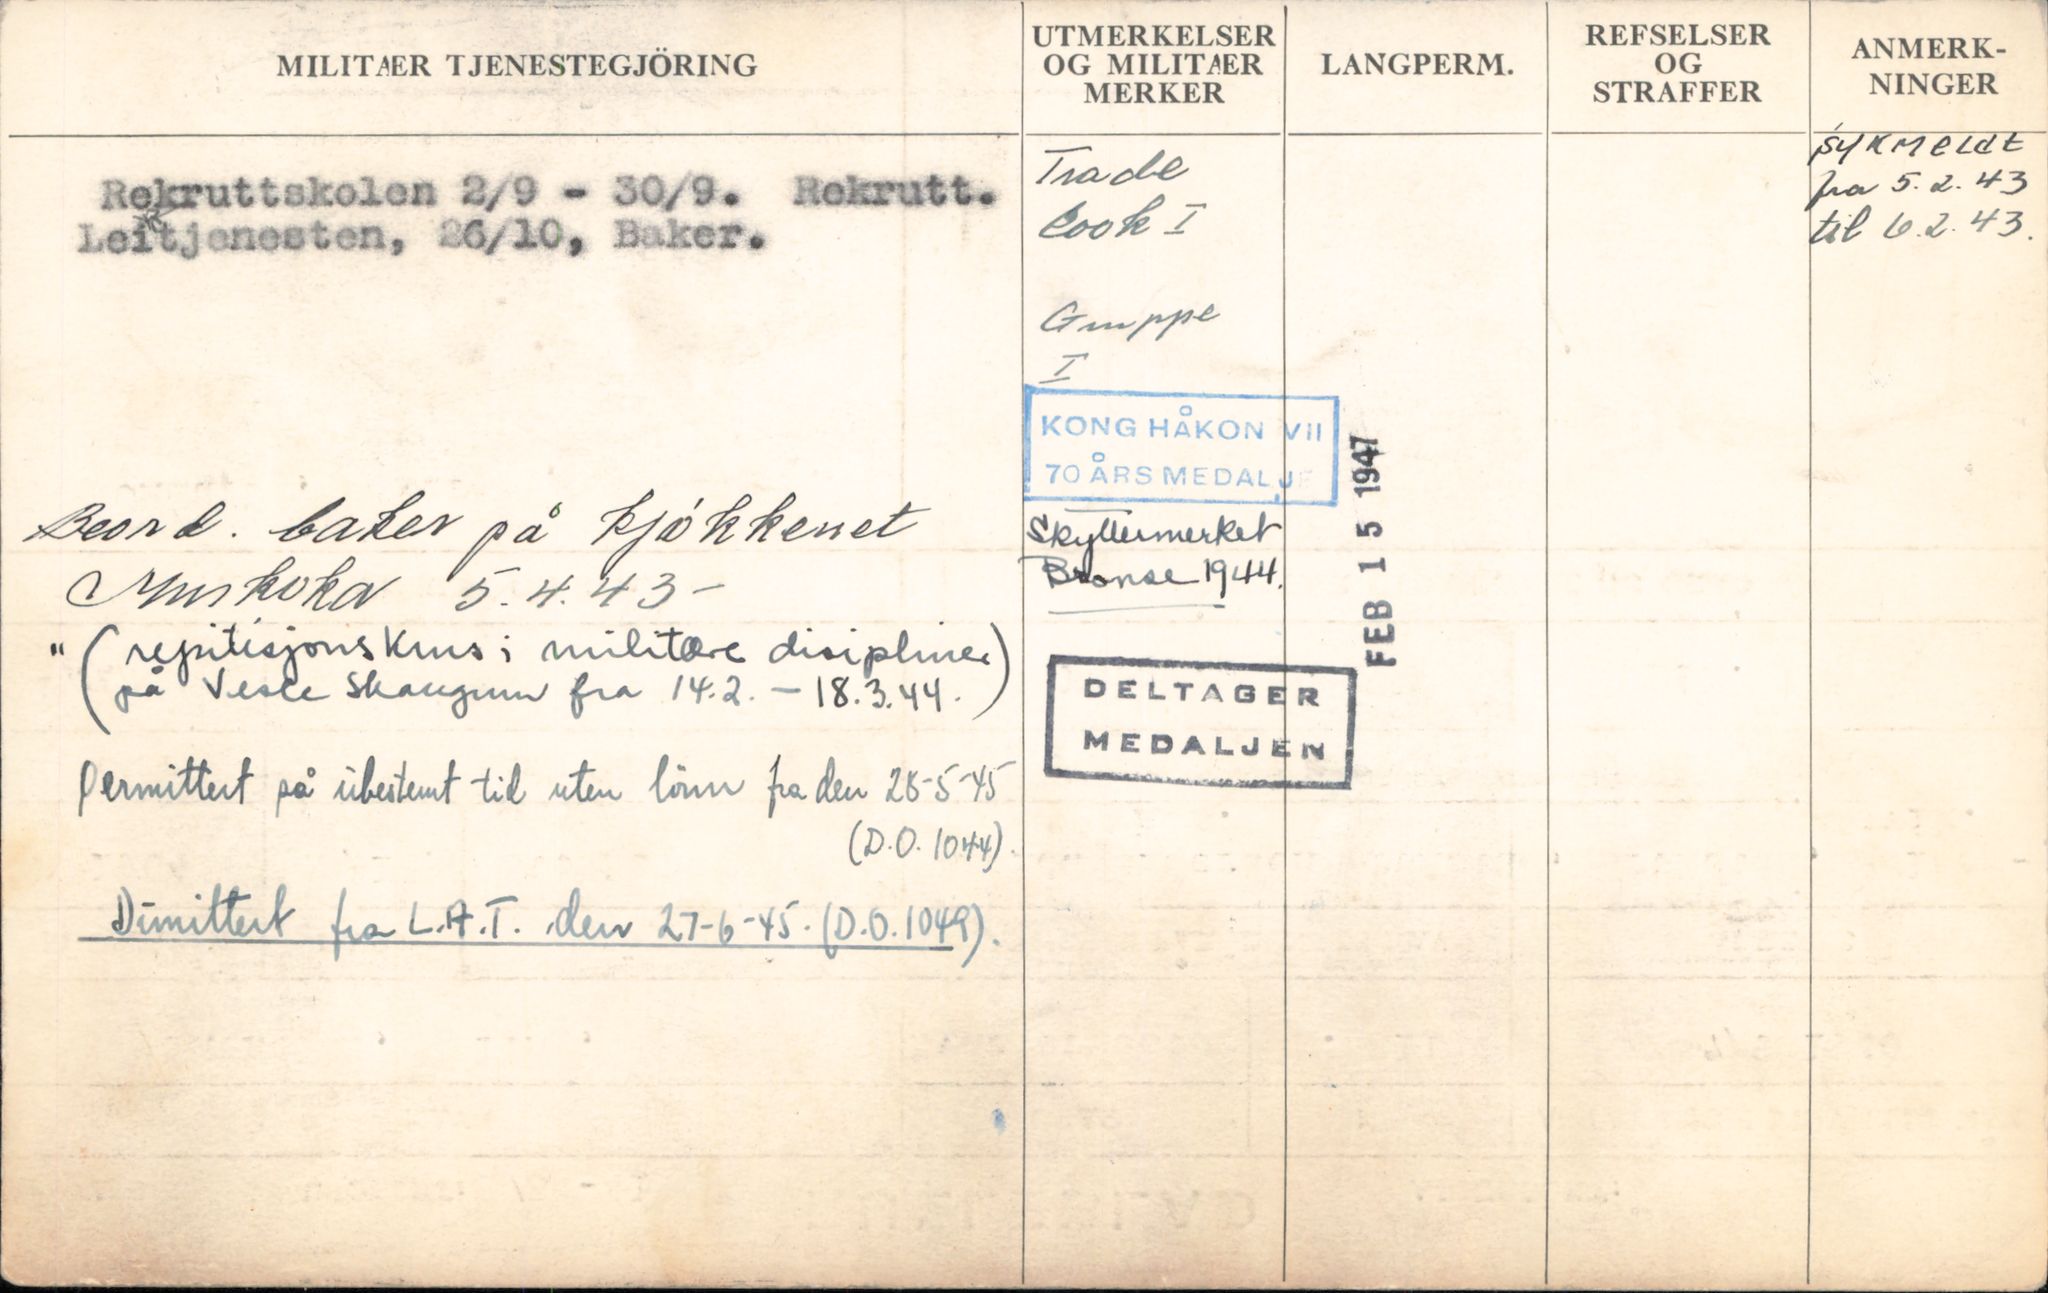 MILITÆR TJENESTEGJÖRING
UTMERKELSER
OG MILITÆR
MERKER
LANGPERM.
REFSELSER
OG
STRAFFER
ANMERK-
NINGER
Rekruttskolen 2/9 - 30/9. Rekrutt.
Leitjenesten, 26/10, Baker.
Beord. baker på kjökkenet
Muskoka 5.4.43-
" (repitisjonskurs i militære disipliner)
på Vesle Skaugum fra 14.2. - 18.3.44.)
Permittert på ubestemt tid uten lönn fra den 28-5-45
(D.O. 1044).
Dimittert fra L.A.T. den 27-6-45. (D.O. 1049).
Trade
Cook I
Gruppe
I
KONG HÅKON VII
70 ÅRS MEDALJE
Skyttermerket
Bronse 1944.
DELTAGER
MEDALJEN
FEB 15 1947
Sykmeldt
fra 5.2.43
til 6.2.43.